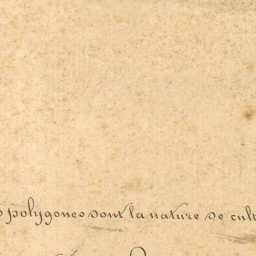 polygones dont la nature de cult